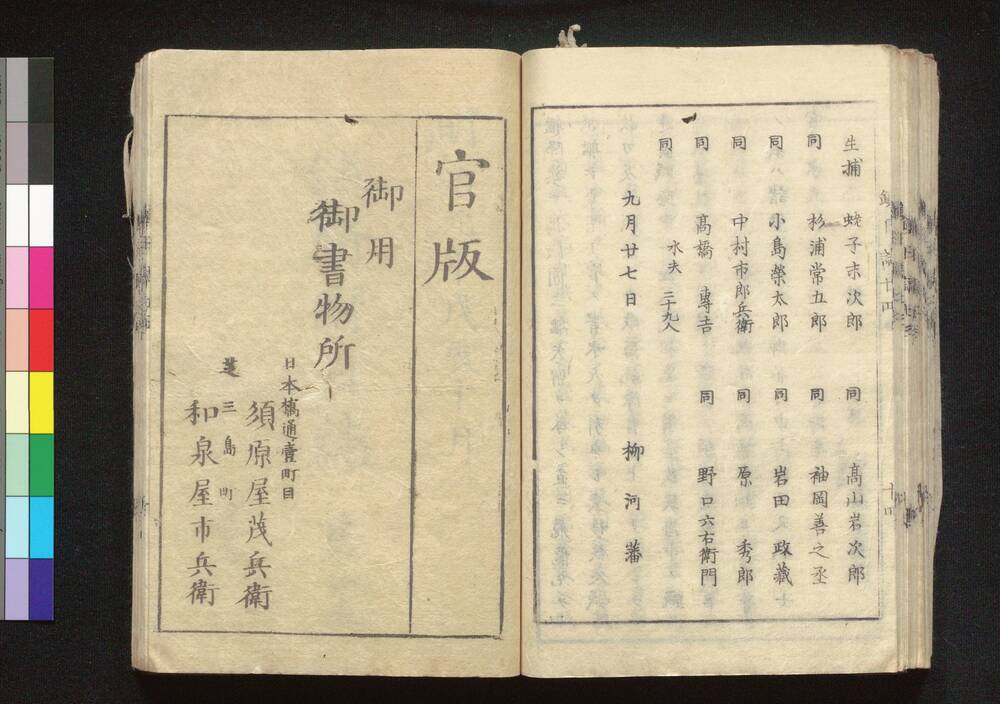 生捕 蛯子末次郎 同 高山岩次郎
同 杉浦常五郎 同 袖岡善之丞
同 小島榮太郎 同 岩田政藏
同 中村市郎兵衛 同 原秀郎
同 高橋專吉 同 野口六右衛門
同 水夫 三十九人
九月廿七日 柳河藩
官版
御用
御書物所
日本橋通壹町目
須原屋茂兵衛
芝三島町
和泉屋市兵衛